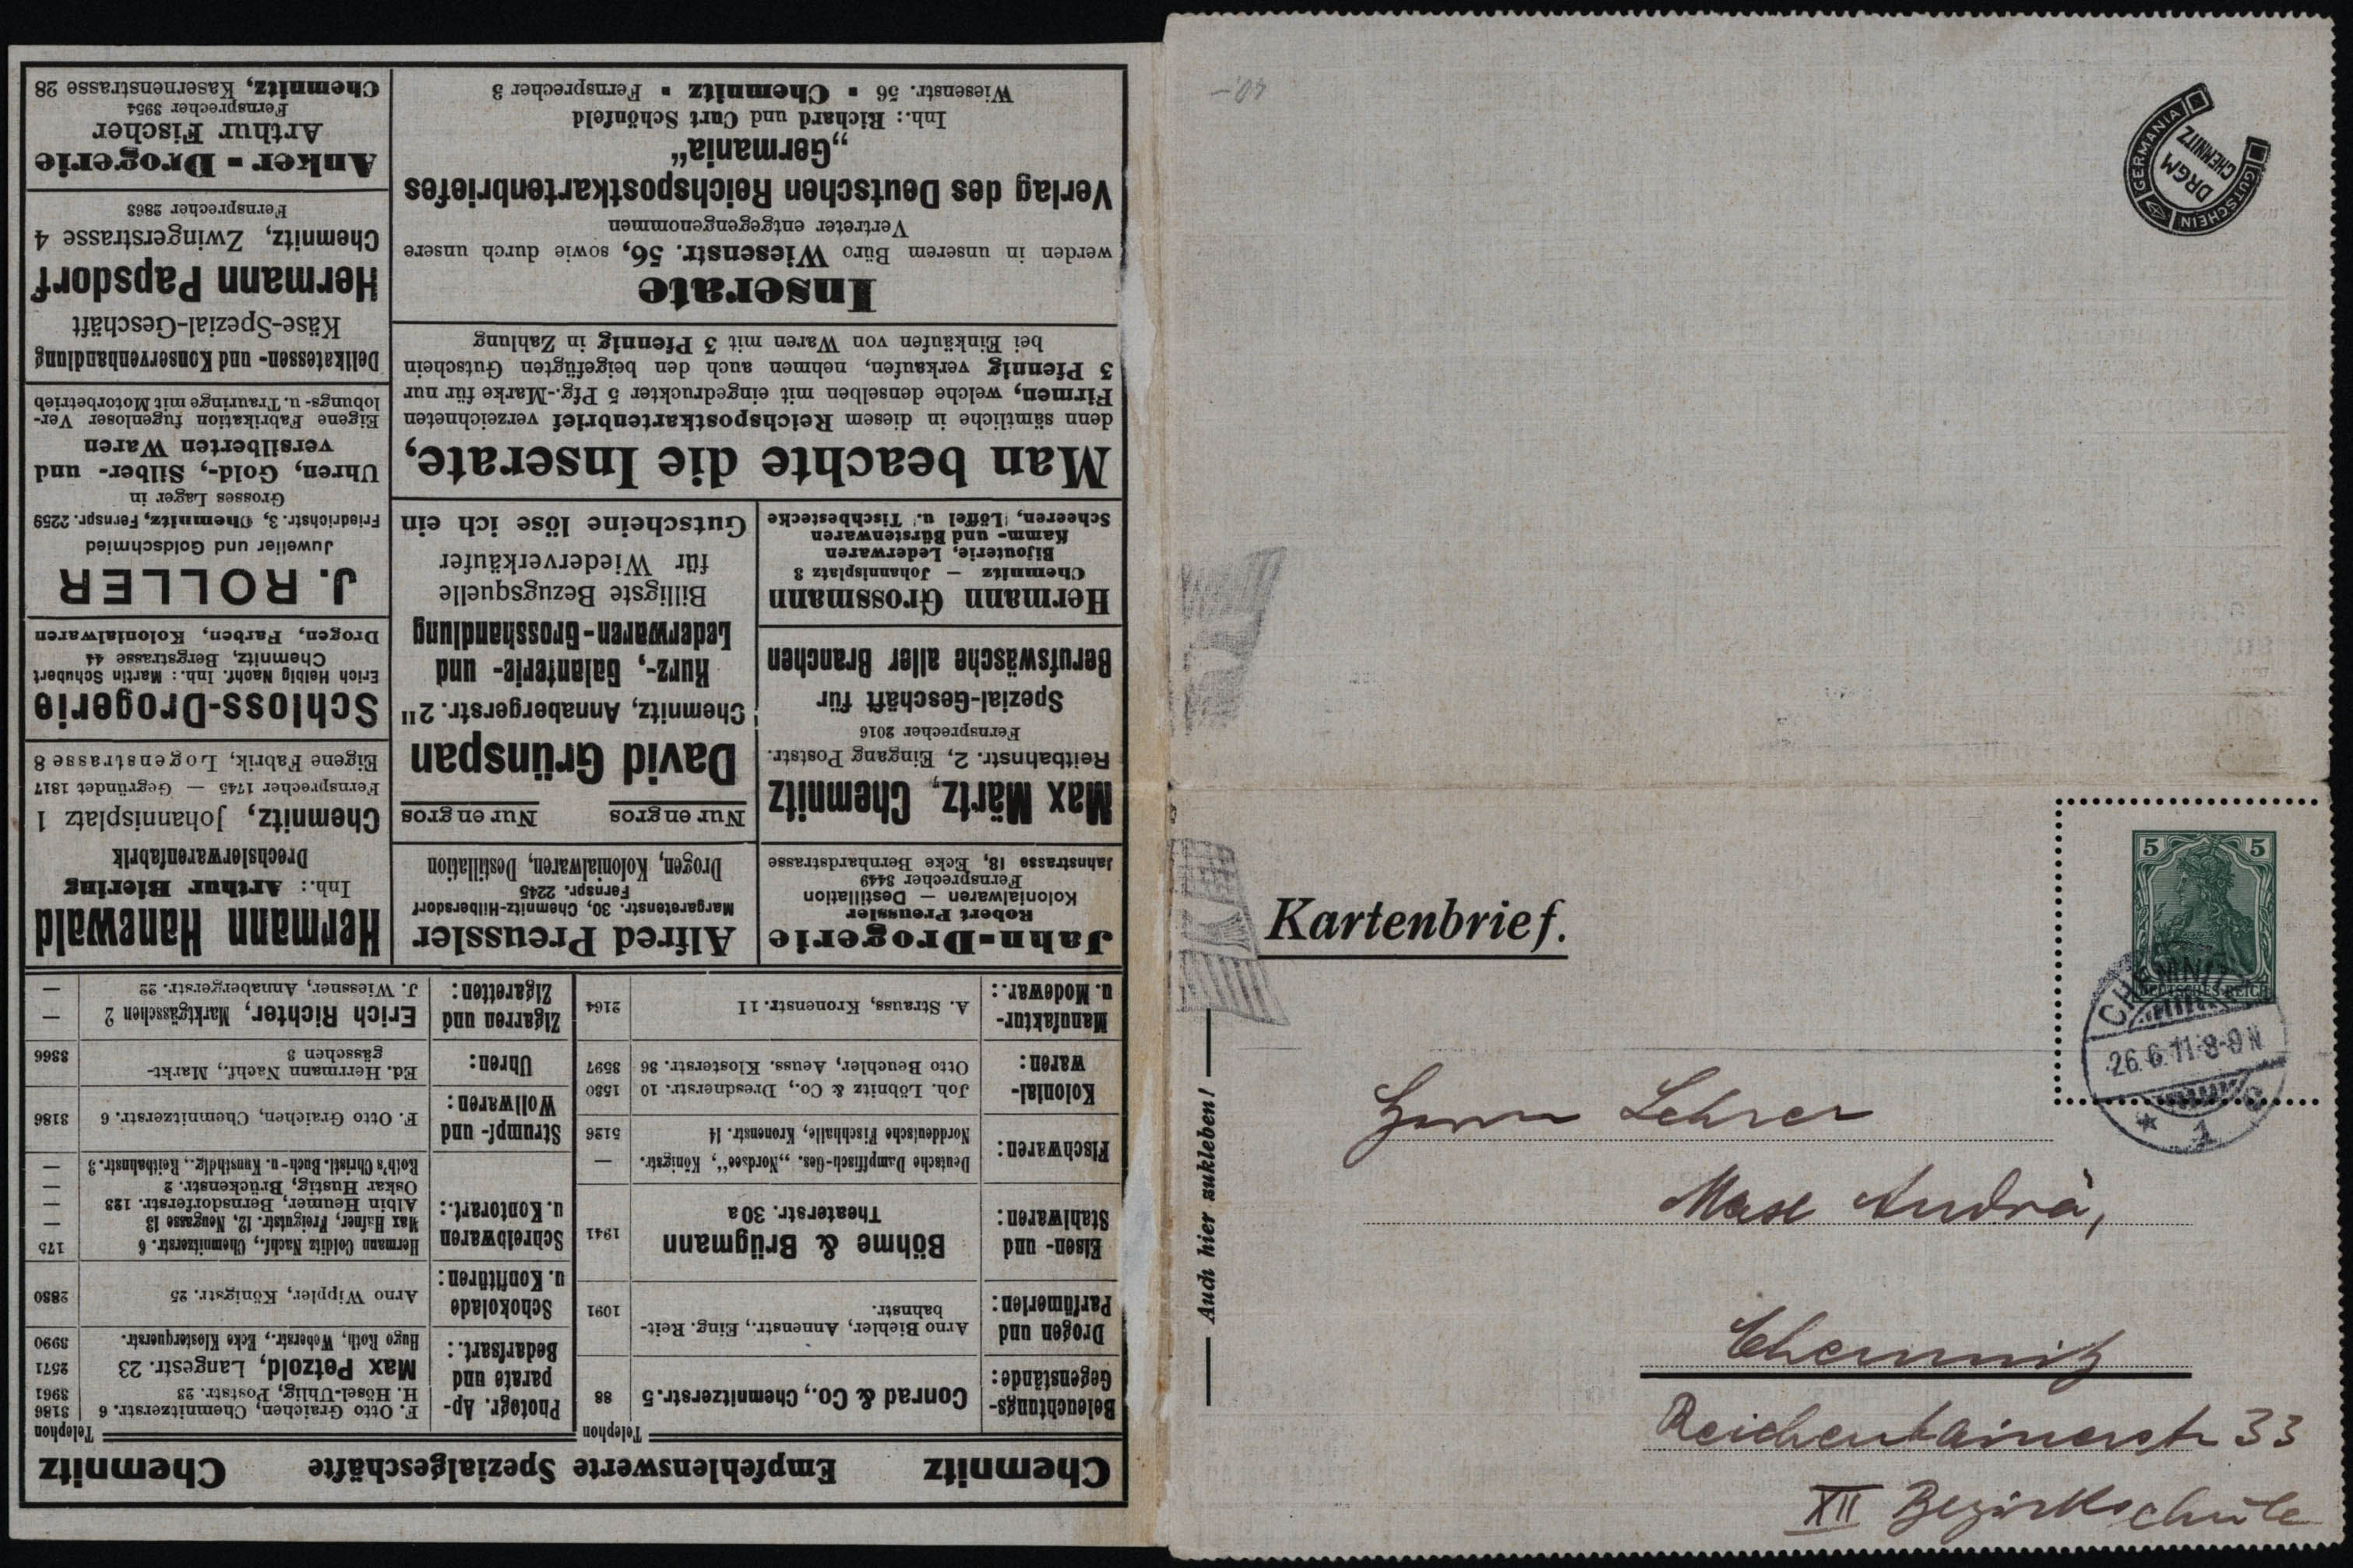 Chemnitz Empfehlenswerte Spezialgeschäfte Chemnitz
Telephon
Beleuchtungs-Gegenstände: Conrad & Co., Chemnitzerstr. 5 88
Drogen und Parfümerien: Arno Biehler, Annenstr., Eing. Reit-
bahnstr. 1091
Eisen- und Stahlwaren: Böhme & Brügmann
Theaterstr. 30a 1941
Fischwaren: Deutsche Dampffisch-Ges. „Nordsee“, Königstr. —
Norddeutsche Fischhalle, Kronenstr. 14 5126
Kolonial-waren: Joh. Löbnitz & Co., Dresdnerstr. 10 1580
Otto Beuchler, Aeuss. Klosterstr. 36 3597
Manufaktur- u. Modewar.: A. Strauss, Kronenstr. 11 2164
Telephon
Photogr. Ap-parate und Bedarfsart.: F. Otto Graichen, Chemnitzerstr. 6 3186
H. Hösel-Uhlig, Poststr. 23 3961
Max Petzold, Langestr. 23 2571
Hugo Roth, Weberstr., Ecke Klosterquerstr. 3990
Schokolade u. Konfitüren: Arno Wippler, Königstr. 25 2880
Schreibwaren u. Kontorart.: Hermann Colditz Nachf., Chemnitzerstr. 6 175
Max Hafner, Freigutstr. 12, Neugasse 13 —
Albin Heumer, Bernsdorferstr. 123 —
Oskar Hustig, Brückenstr. 2 —
Roth's Christl. Buch- u. Kunsthdlg., Reitbahnstr. 3 —
Strumpf- und Wollwaren: F. Otto Graichen, Chemnitzerstr. 6 3186
Uhren: Ed. Herrmann Nachf., Markt-
gässchen 3 3366
Zigarren und Zigaretten: Erich Richter, Marktgässchen 2 —
J. Wiessner, Annabergerstr. 22 —
Jahn-Drogerie
Robert Preussler
Kolonialwaren — Destillation
Fernsprecher 3449
Jahnstrasse 18, Ecke Bernhardstrasse
Alfred Preussler
Margaretenstr. 30, Chemnitz-Hilbersdorf
Fernspr. 2245
Drogen, Kolonialwaren, Destillation
Hermann Hanewald
Inh.: Arthur Biering
Drechslerwarenfabrik
Chemnitz, Johannisplatz 1
Fernsprecher 1745 — Gegründet 1817
Eigene Fabrik, Logenstrasse 8
Max Märtz, Chemnitz
Reitbahnstr. 2, Eingang Poststr.
Fernsprecher 2016
Spezial-Geschäft für
Berufswäsche aller Branchen
Nur en gros Nur en gros
David Grünspan
Chemnitz, Annabergerstr. 2 II
Kurz-, Galanterie- und
Lederwaren-Grosshandlung
Billigste Bezugsquelle
für Wiederverkäufer
Gutscheine löse ich ein
Schloss-Drogerie
Erich Helbig Nachf. Inh.: Martin Schubert
Chemnitz, Bergstrasse 44
Drogen, Farben, Kolonialwaren
Hermann Grossmann
Chemnitz — Johannisplatz 3
Bijouterie, Lederwaren
Kamm- und Bürstenwaren
Scheeren, Löffel u. Tischbestecke
J. ROLLER
Juwelier und Goldschmied
Friedrichstr. 3, Chemnitz, Fernspr. 2259
Grosses Lager in
Uhren, Gold-, Silber- und
versilberten Waren
Eigene Fabrikation fugenloser Ver-
lobungs- u. Trauringe mit Motorbetrieb
Man beachte die Inserate,
denn sämtliche in diesem Reichspostkartenbrief verzeichneten
Firmen, welche denselben mit eingedruckter 5 Pfg.-Marke für nur
3 Pfennig verkaufen, nehmen auch den beigefügten Gutschein
bei Einkäufen von Waren mit 3 Pfennig in Zahlung
Delikatessen- und Konservenhandlung
Käse-Spezial-Geschäft
Hermann Papsdorf
Chemnitz, Zwingerstrasse 4
Fernsprecher 2863
Inserate
werden in unserem Büro Wiesenstr. 56, sowie durch unsere
Vertreter entgegengenommen
Verlag des Deutschen Reichspostkartenbriefes
„Germania“
Inh.: Richard und Curt Schönfeld
Wiesenstr. 56 ▪ Chemnitz ▪ Fernsprecher 3
Anker-Drogerie
Arthur Fischer
Fernsprecher 3954
Chemnitz, Kasernenstrasse 28
40,-
GERMANIA
GUTSCHEIN
DRGM
CHEMNITZ
5 5
DEUTSCHES REICH
CHEMNITZ
26.6.11.8-9N
* 1 c
Kartenbrief.
Auch hier zukleben!
Herrn Lehrer
Max Andrä,
Chemnitz
Reichenhainerstr 33
XII Bezirksschule